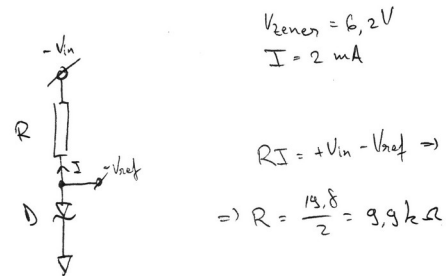 -Vin
R
I
-Vref
D
Vzener = 6,2V
I = 2 mA
RI = +Vin - Vref ⇒
⇒ R = 19,8/2 = 9,9 kΩ